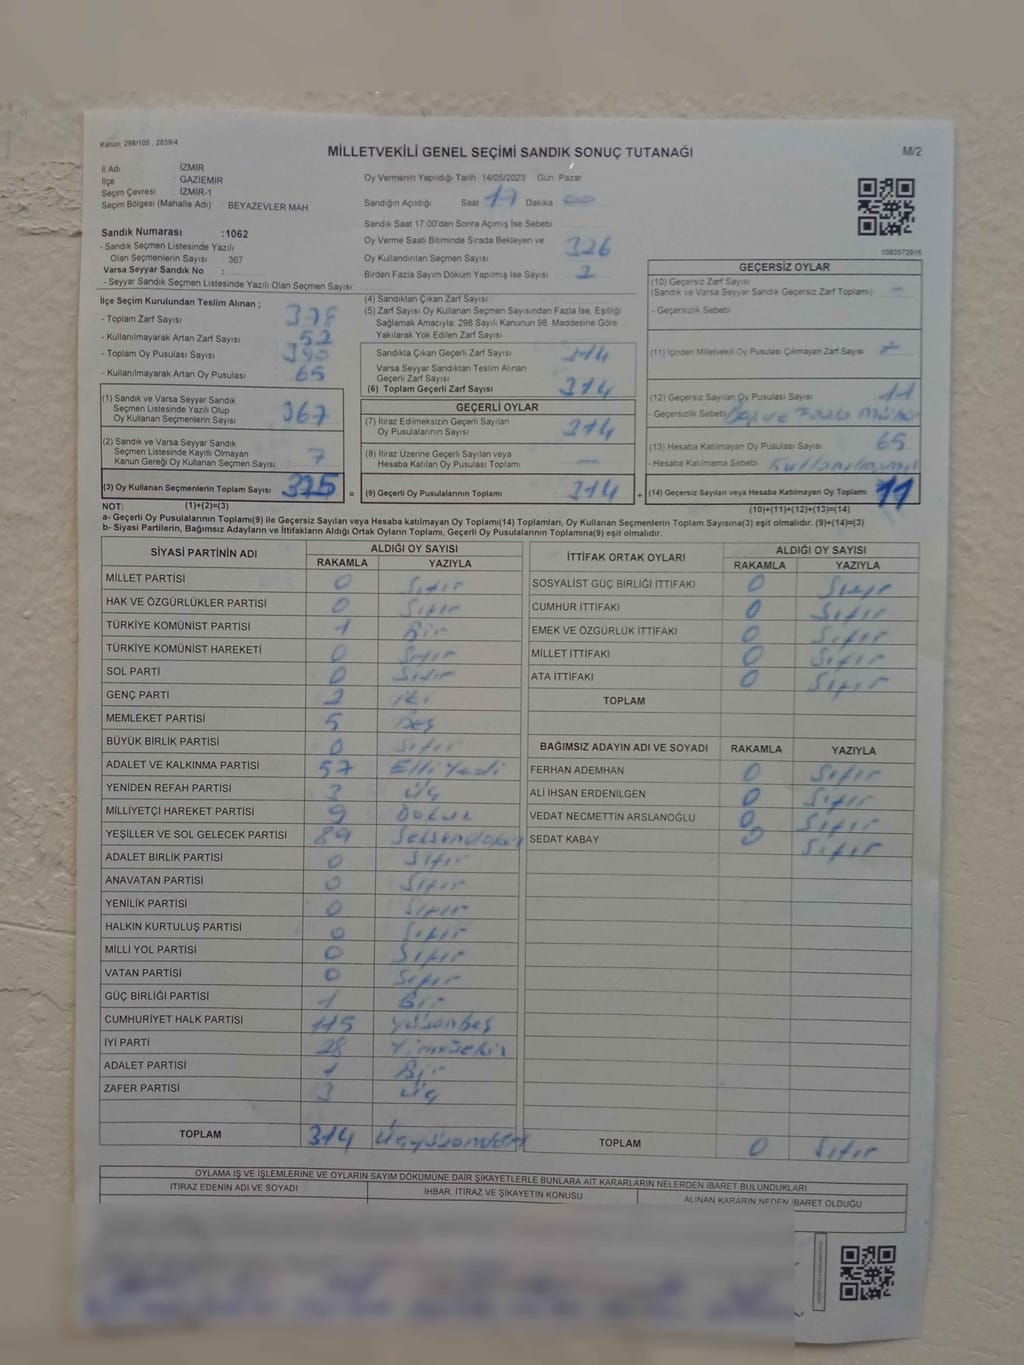 Kanun: 298/105 , 2839/4
MİLLETVEKİLİ GENEL SEÇİMİ SANDIK SONUÇ TUTANAĞI
M/2
İl Adı : İZMİR
İlçe : GAZİEMİR
Seçim Çevresi : İZMİR-1
Seçim Bölgesi (Mahalle Adı) : BEYAZEVLER MAH
Oy Vermenin Yapıldığı Tarih :14/05/2023 Gün: Pazar
Sandığın Açıldığı Saat 17 Dakika 00
Sandık Saat 17:00'den Sonra Açımış İse Sebebi
Oy Verme Saati Bitiminde Sırada Bekleyen ve
Oy Kullandırılan Seçmen Sayısı 326
Birden Fazla Sayım Döküm Yapılmış İse Sayısı
1083572916
Sandık Numarası :1062
- Sandık Seçmen Listesinde Yazılı
Olan Seçmenlerin Sayısı : 367
Varsa Seyyar Sandık No :
- Seyyar Sandık Seçmen Listesinde Yazılı Olan Seçmen Sayısı :
İlçe Seçim Kurulundan Teslim Alınan ;
- Toplam Zarf Sayısı 378
- Kullanılmayarak Artan Zarf Sayısı 52
- Toplam Oy Pusulası Sayısı 390
- Kullanılmayarak Artan Oy Pusulası 65
(1) Sandık ve Varsa Seyyar Sandık
Seçmen Listesinde Yazılı Olup
Oy Kullanan Seçmenlerin Sayısı 367
(2) Sandık ve Varsa Seyyar Sandık
Seçmen Listesinde Kayıtlı Olmayan
Kanun Gereği Oy Kullanan Seçmen Sayısı 7
(3) Oy Kullanan Seçmenlerin Toplam Sayısı
(4) Sandıktan Çıkan Zarf Sayısı
(5) Zarf Sayısı Oy Kullanan Seçmen Sayısından Fazla İse, Eşitliği
Sağlamak Amacıyla; 298 Sayılı Kanunun 98. Maddesine Göre
Yakılarak Yok Edilen Zarf Sayısı
Sandıkta Çıkan Geçerli Zarf Sayısı 314
Varsa Seyyar Sandıktan Teslim Alınan
Geçerli Zarf Sayısı
(6) Toplam Geçerli Zarf Sayısı 314
GEÇERLİ OYLAR
(7) İtiraz Edilmeksizin Geçerli Sayılan
Oy Pusulalarının Sayısı 314
(8) İtiraz Üzerine Geçerli Sayılan veya
Hesaba Katılan Oy Pusulası Toplamı —
= (9) Geçerli Oy Pusulalarının Toplamı 314 +
GEÇERSİZ OYLAR
(10) Geçersiz Zarf Sayısı
(Sandık ve Varsa Seyyar Sandık Geçersiz Zarf Toplamı) -
- Geçersizlik Sebebi
(11) İçinden Milletvekili Oy Pusulası Çıkmayan Zarf Sayısı
(12) Geçersiz Sayılan Oy Pusulası Sayısı 11
- Geçersizlik Sebebi Boş ve Fazla
(13) Hesaba Katılmayan Oy Pusulası Sayısı 65
- Hesaba Katılmama Sebebi
(14) Geçersiz Sayılan veya Hesaba Katılmayan Oy Toplamı 11
NOT: (1)+(2)=(3)
(10)+(11)+(12)+(13)=(14)
a- Geçerli Oy Pusulalarının Toplamı(9) ile Geçersiz Sayılan veya Hesaba katılmayan Oy Toplamı(14) Toplamları, Oy Kullanan Seçmenlerin Toplam Sayısına(3) eşit olmalıdır. (9)+(14)=(3)
b- Siyasi Partilerin, Bağımsız Adayların ve İttifakların Aldığı Ortak Oyların Toplamı, Geçerli Oy Pusulalarının Toplamına(9) eşit olmalıdır.
SİYASİ PARTİNİN ADI ALDIĞI OY SAYISI
RAKAMLA YAZIYLA
MİLLET PARTİSİ 0 Sıfır
HAK VE ÖZGÜRLÜKLER PARTİSİ 0 Sıfır
TÜRKİYE KOMÜNİST PARTİSİ 1 Bir
TÜRKİYE KOMÜNİST HAREKETİ 0 Sıfır
SOL PARTİ 0 Sıfır
GENÇ PARTİ 2 iki
MEMLEKET PARTİSİ 5 Beş
BÜYÜK BİRLİK PARTİSİ 0 Sıfır
ADALET VE KALKINMA PARTİSİ 57 Elli Yedi
YENİDEN REFAH PARTİSİ 3 Üç
MİLLİYETÇİ HAREKET PARTİSİ 9 Dokuz
YEŞİLLER VE SOL GELECEK PARTİSİ 89 Seksendokuz
ADALET BİRLİK PARTİSİ 0 Sıfır
ANAVATAN PARTİSİ 0 Sıfır
YENİLİK PARTİSİ 0 Sıfır
HALKIN KURTULUŞ PARTİSİ 0 Sıfır
MİLLİ YOL PARTİSİ 0 Sıfır
VATAN PARTİSİ 0 Sıfır
GÜÇ BİRLİĞİ PARTİSİ 1 Bir
CUMHURİYET HALK PARTİSİ 115 Yüzonbeş
İYİ PARTİ 28
ADALET PARTİSİ 1 Bir
ZAFER PARTİSİ 3 Üç
TOPLAM 314 Üçyüzondört
İTTİFAK ORTAK OYLARI ALDIĞI OY SAYISI
RAKAMLA YAZIYLA
SOSYALİST GÜÇ BİRLİĞİ İTTİFAKI 0 Sıfır
CUMHUR İTTİFAKI 0 Sıfır
EMEK VE ÖZGÜRLÜK İTTİFAKI 0 Sıfır
MİLLET İTTİFAKI 0 Sıfır
ATA İTTİFAKI 0 Sıfır
TOPLAM
BAĞIMSIZ ADAYIN ADI VE SOYADI RAKAMLA YAZIYLA
FERHAN ADEMHAN 0 Sıfır
ALİ İHSAN ERDENİLGEN 0 Sıfır
VEDAT NECMETTİN ARSLANOĞLU 0 Sıfır
SEDAT KABAY 0 Sıfır
TOPLAM 0 Sıfır
OYLAMA İŞ VE İŞLEMLERİNE VE OYLARIN SAYIM DÖKÜMÜNE DAİR ŞİKAYETLERLE BUNLARA AİT KARARLARIN NELERDEN İBARET BULUNDUKLARI
İTİRAZ EDENİN ADI VE SOYADI İHBAR, İTİRAZ VE ŞİKAYETİN KONUSU ALINAN KARARIN NEDEN İBARET OLDUĞU